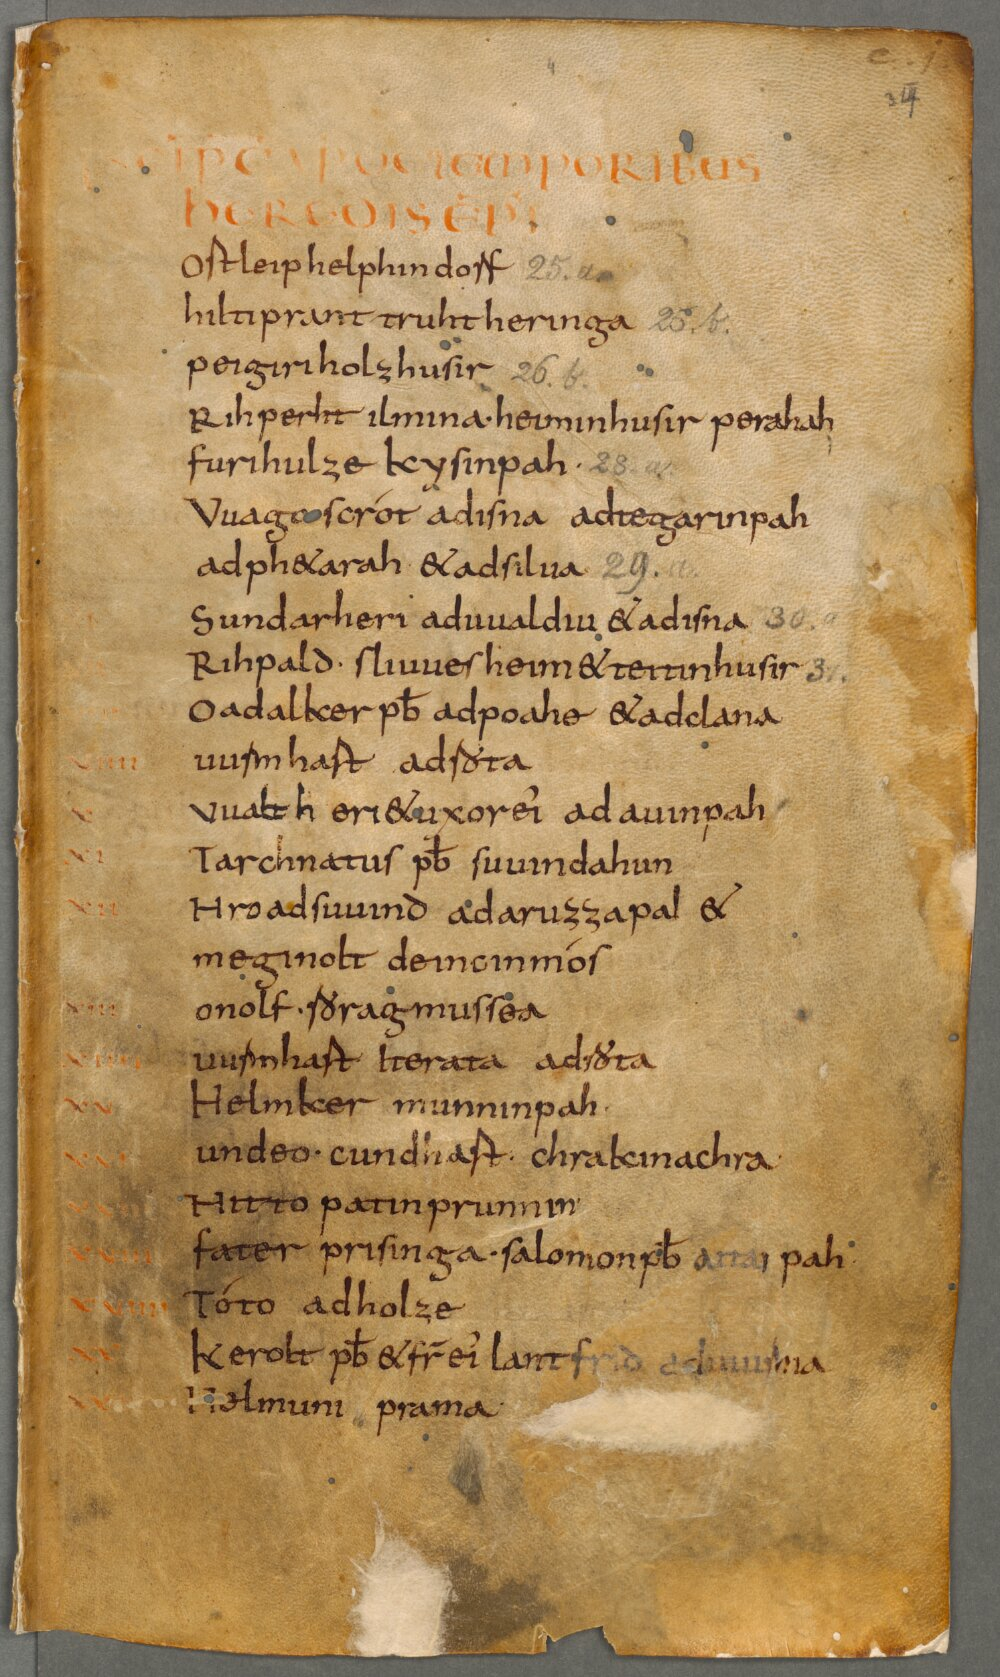 TEMPORIBUS
Ostleip helphindorf 25. a.
hiltiprant truhtheringa 25. b.
peigiri holzhusir 26. b.
Rihperht ilmina · heiminhusir perahah
furihulze kysinpah · 28. a.
Vuago scrót adisna adtegarinpah
adph&arah &adsilua 29. a.
Sundarheri aduualdiu &adisna 30. a
Rihpald · sliuuesheim &tettinhusir 31.
Oadalker pb̄ adpoahe &adclana
xviiii uusmhast
x Vualth eri&uxorei ad auuinpah
xi Tarchnatus pb̄ suuindahun
xii Hroadsuuind adaruzzapal &
meginolt deincinmós
xiii onolf ·
uusmhast iterata
xv Helmker munninpah ·
undeo · cundhast · chrakinachra
Hitto patinprunnin
fater prisinga · salomon pb̄ pah
Tóto adholze
Kerolt pb̄ &fr̄ ei lantfrid
Helmuni prama